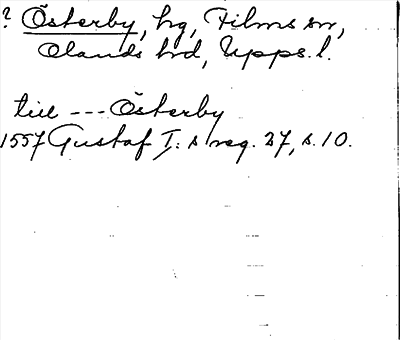 ? Österby, hg, Films sn,
Olands hd, Upps. l.
till --- Österby
1557 Gustaf I:s reg. 27, s. 10.